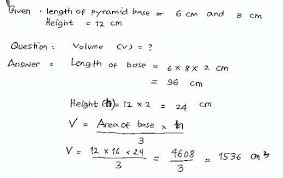 Given : length of pyramid base = 6 cm and 8 cm
Height = 12 cm
Question : Volume (V) = ?
Answer : Length of base = 6 x 8 x 2 cm
= 96 cm
Height (h) = 12 x 2 = 24 cm
V = Area of base x h / 3
V = 12 x 16 x 24 / 3 = 4608 / 3 = 1536 cm 3